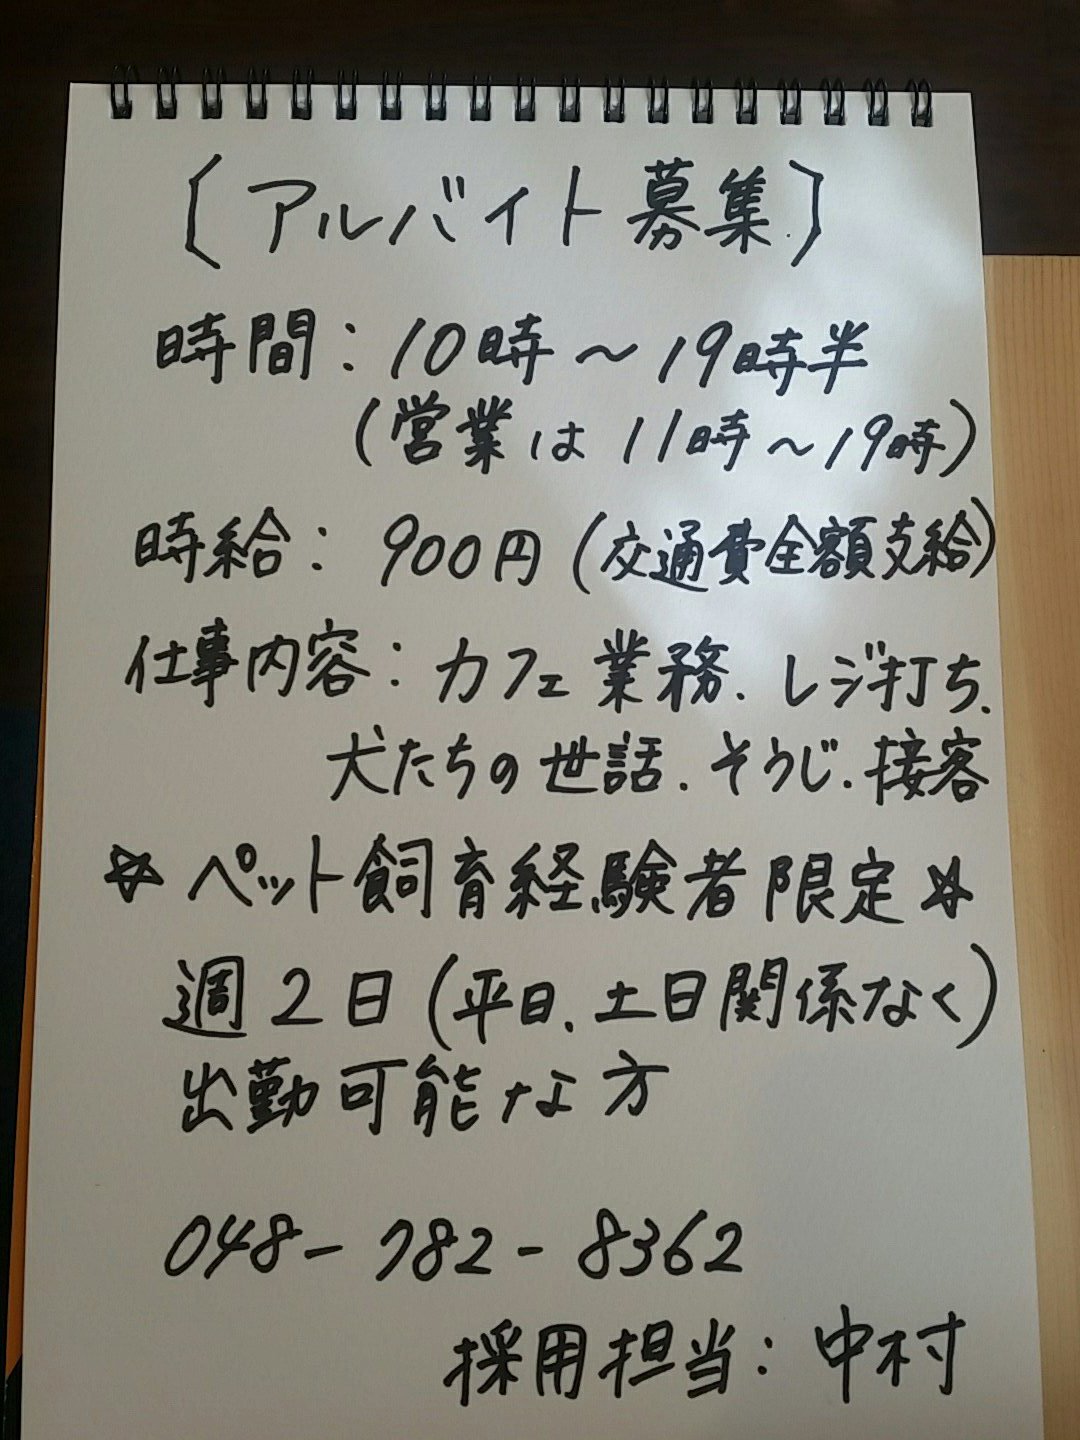 〔アルバイト募集〕
時間：10時～19時半
（営業は11時～19時）
時給：900円（交通費全額支給）
仕事内容：カフェ業務、レジ打ち、
犬たちの世話、そうじ、接客
☆ペット飼育経験者限定☆
週2日（平日、土日関係なく）
出勤可能な方
048-782-8362
採用担当：中村